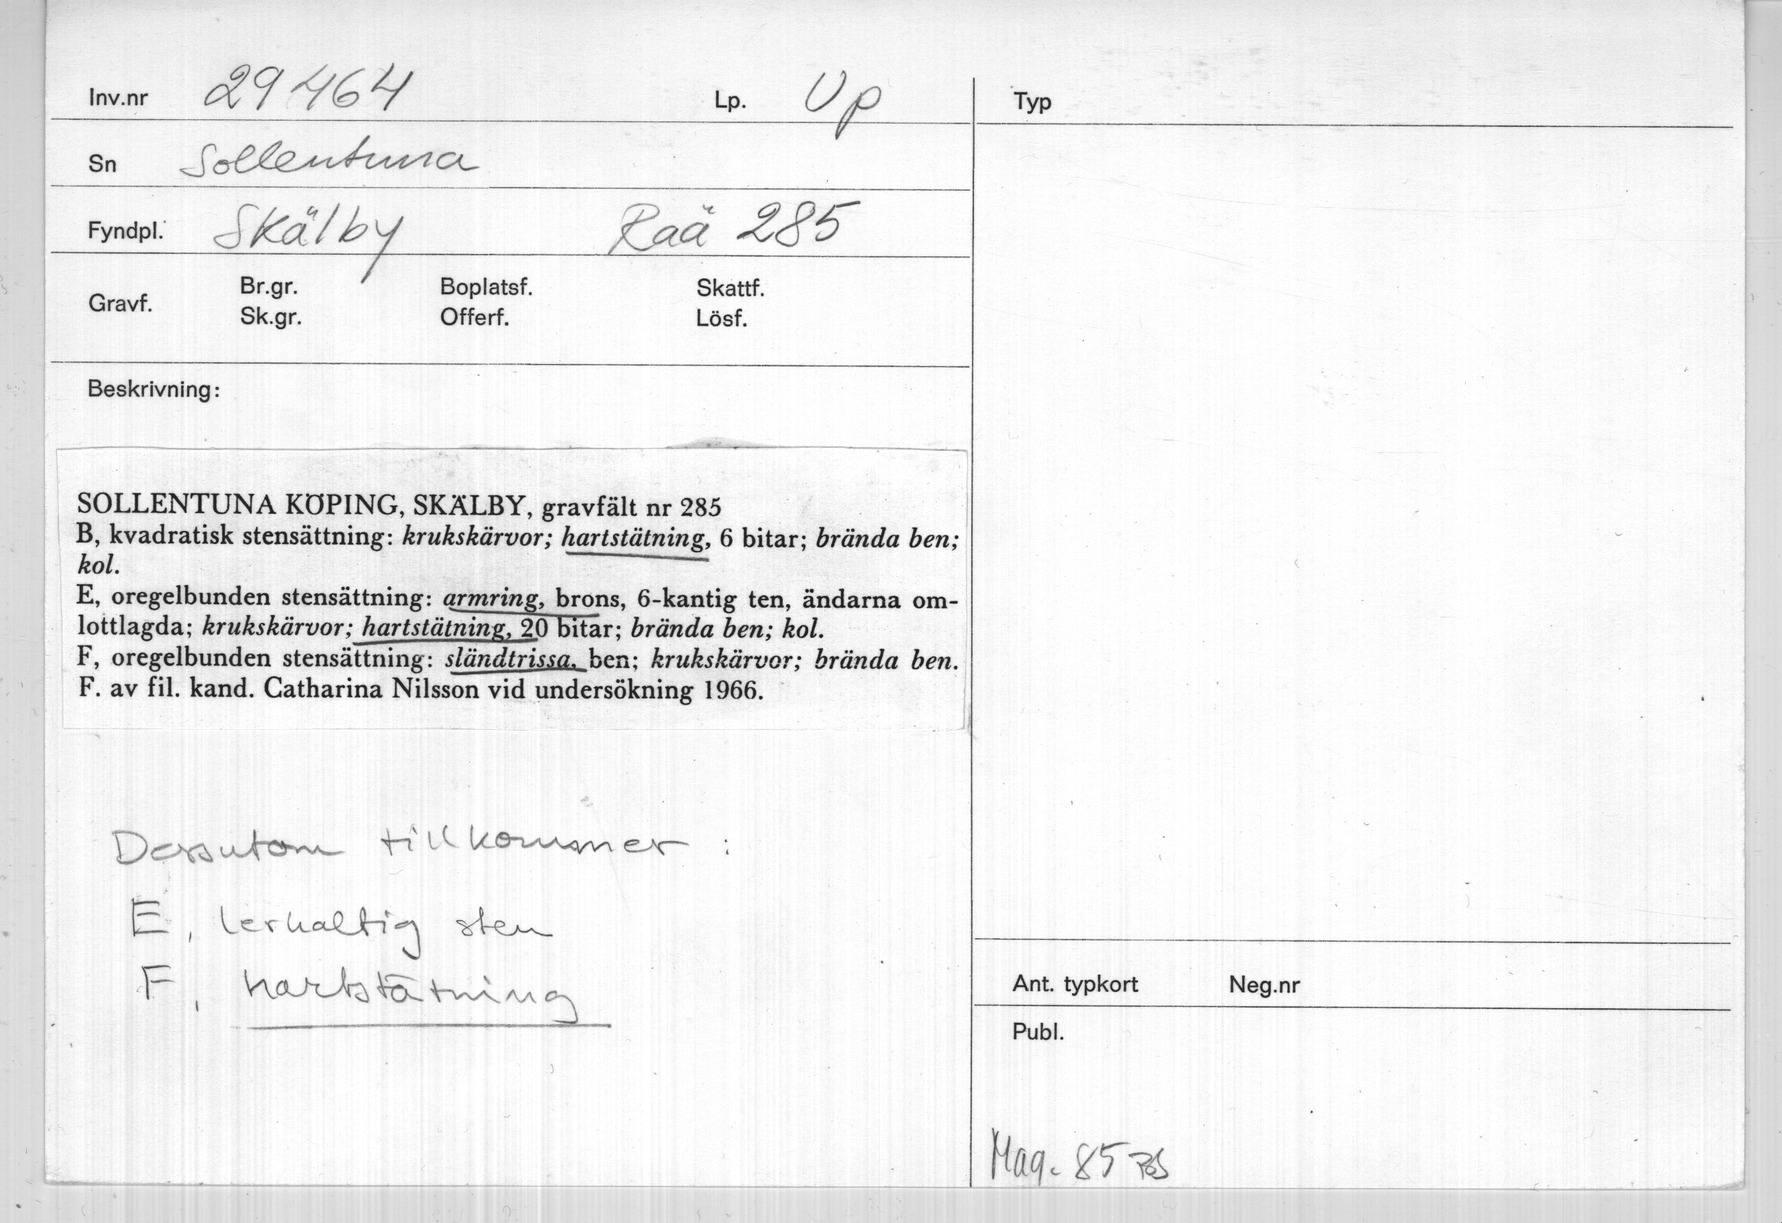 Inv.nr 29464 Lp. Up
Sn Sollentuna
Fyndpl. Skälby Raä 285
Gravf. Br.gr. Boplatsf. Skattf.
Sk.gr. Offerf. Lösf.
Beskrivning:
SOLLENTUNA KÖPING, SKÄLBY, gravfält nr 285
B, kvadratisk stensättning: krukskärvor; hartstätning, 6 bitar; brända ben;
kol.
E, oregelbunden stensättning: armring, brons, 6-kantig ten, ändarna om-
lottlagda; krukskärvor; hartstätning, 20 bitar; brända ben; kol.
F, oregelbunden stensättning: sländtrissa, ben; krukskärvor; brända ben.
F. av fil. kand. Catharina Nilsson vid undersökning 1966.
Dessutom tillkommer :
E, lerhaltig sten
F, hartstätning
Typ
Ant. typkort Neg.nr
Publ.
Mag. 85